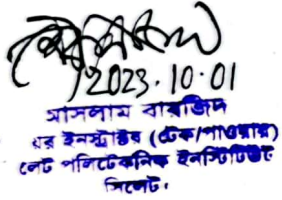 2023.10.01
আসলাম বায়জিদ
য়র ইনস্ট্রাক্টর (টেক/পাওয়ার)
লেট পলিটেকনিক ইনস্টিটিউট
সিলেট।